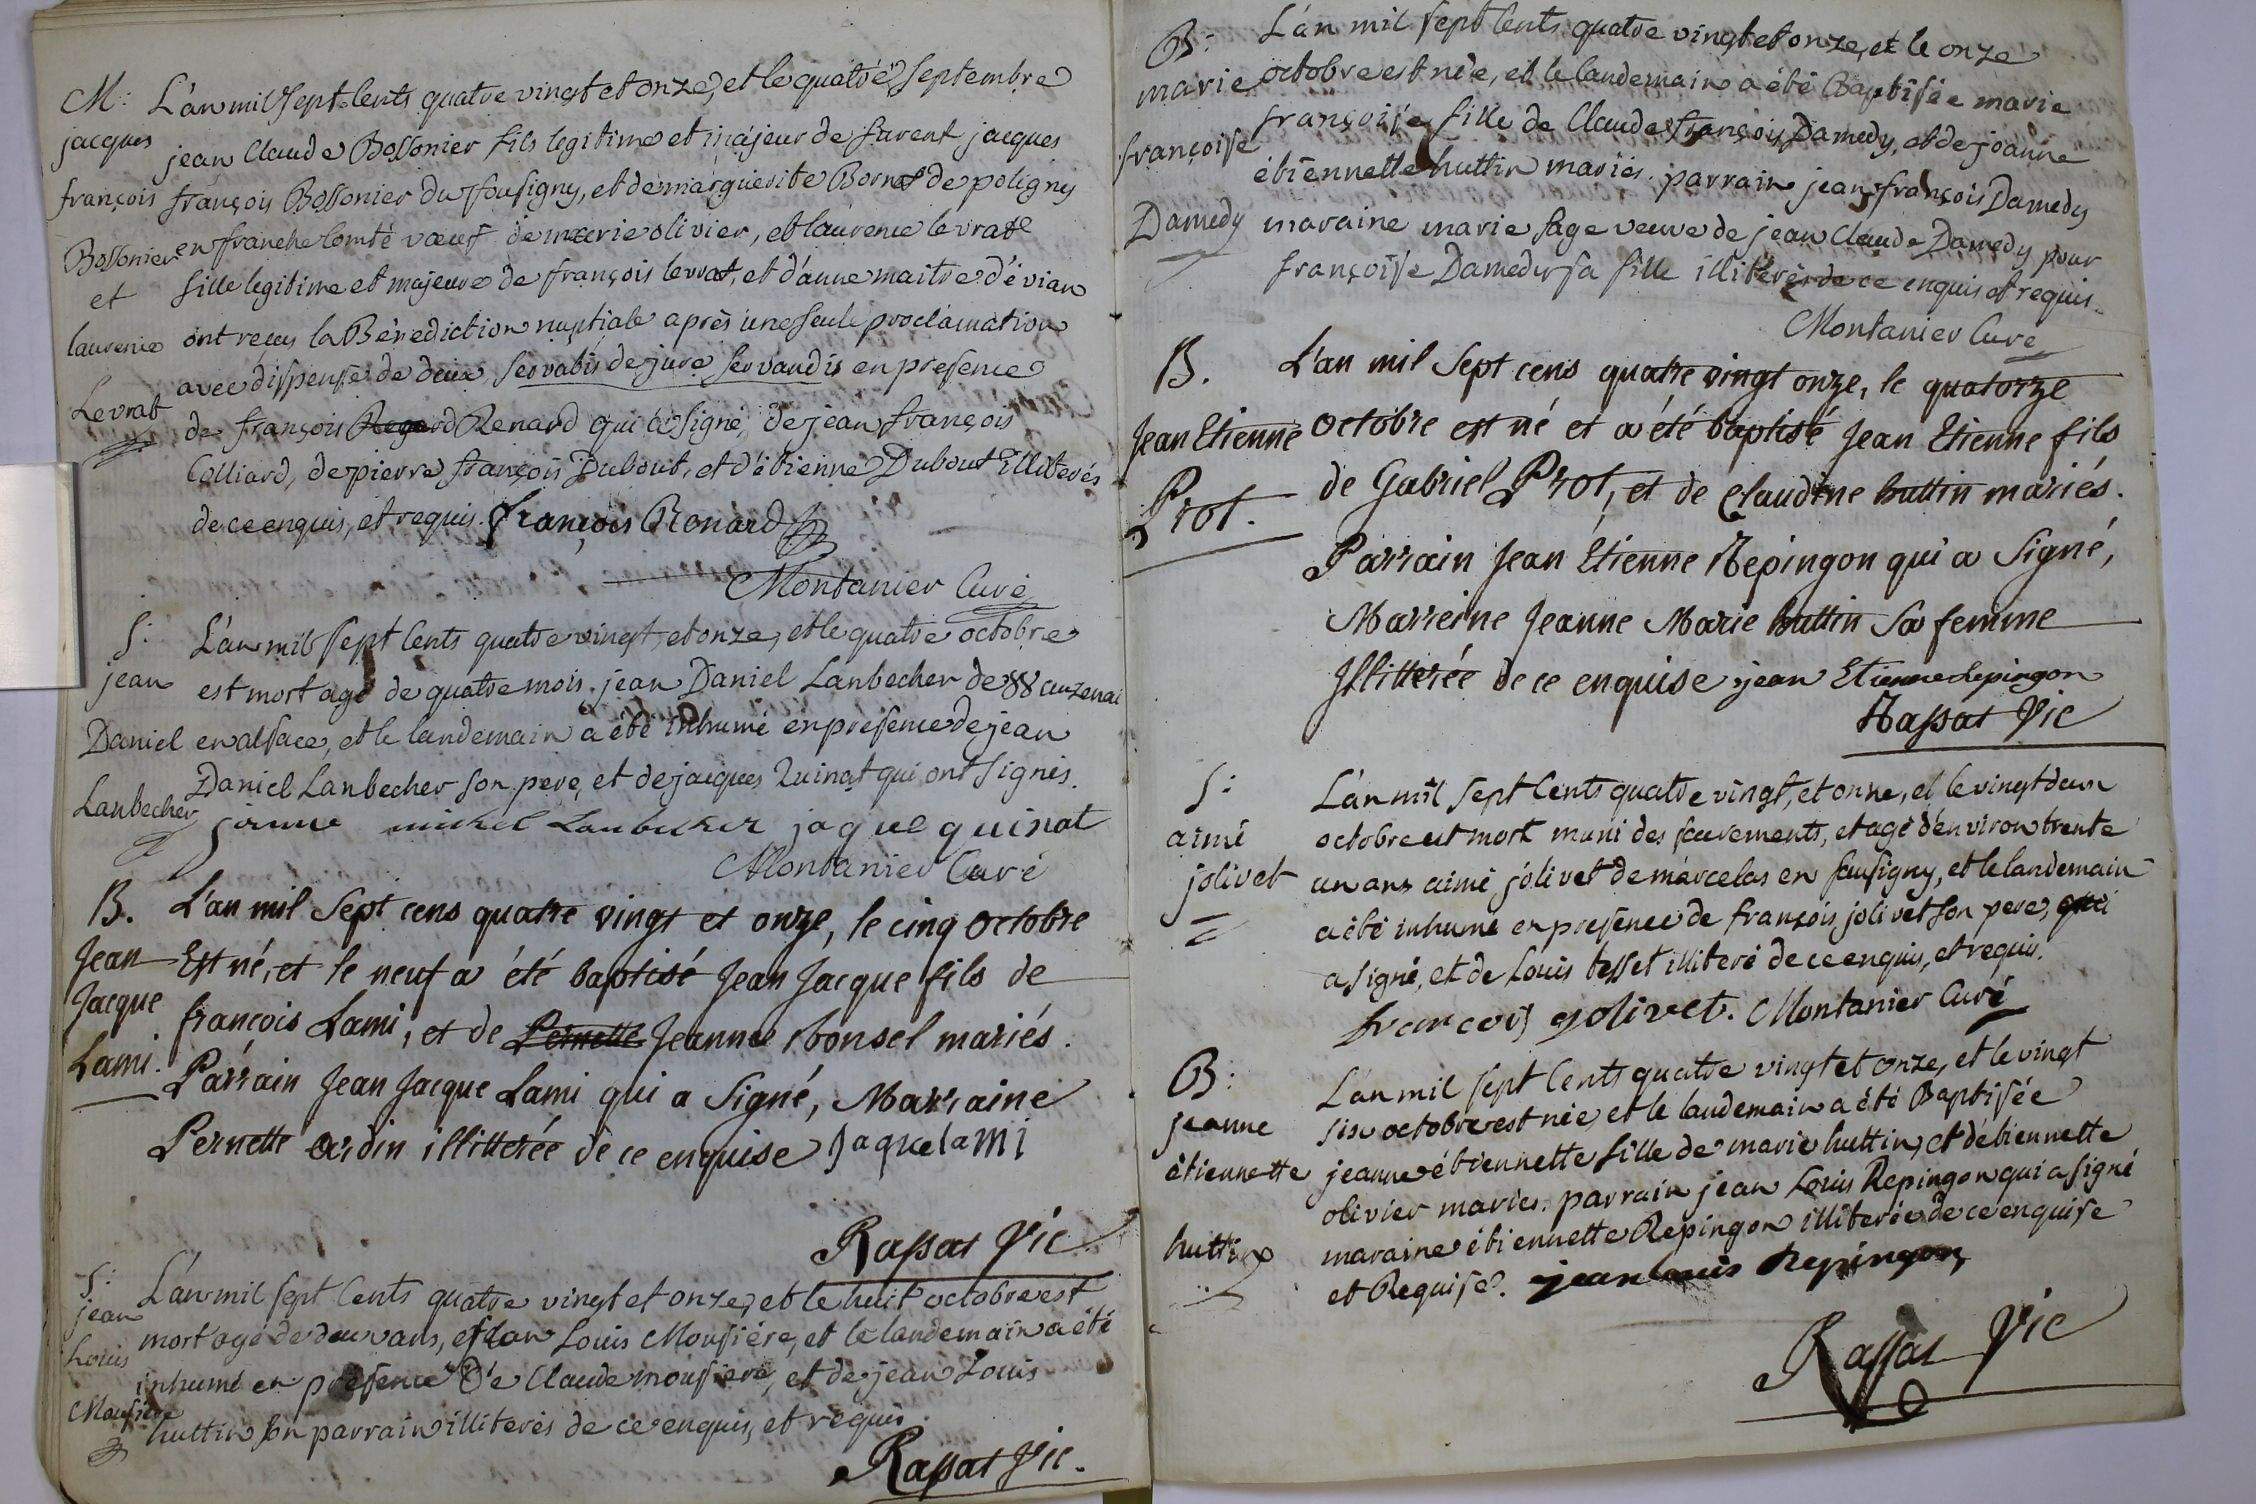 M:
jacques
françois
Bossonier
et
laurence
Levrat
L'an mil sept cents quatre vingt et onze, et le quatre septembre
jean Claude Bossonier fils legitime et majeur de furent jacques
françois Bossonier du fousigny, et de marguerite Bornet de poligny
en franche comté vœuf de marie olivier, et laurence levrat
fille legitime et majeure de françois levrat, et d'anne maitre d'évian
ont reçus la Bénediction nuptiale après une seule proclamation
avec dispense de deux, servatis de jure servandis en presence
de françois Renard qui a signé, de jean françois
Colliard, de pierre françois Dubout, et d'étienne Dubout illiterés
de ce enquis, et requis. François Renard
Montanier Curé
S:
jean
Daniel
Lanbecher
L'an mil sept cents quatre vingt, et onze, et le quatre octobre
est mort agé de quatre mois, jean Daniel Lanbecher de
en alsace, et le landemain a été inhumé en presence de jean
Daniel Lanbecher son pere, et de jacques Quinat qui ont signés.
michel Lanbecher jaque quinat
Montanier Curé
B.
Jean
Jacque
Lami.
L'an mil Sept cens quatre vingt et onze, le cinq octobre
Est né, et le neuf a été baptisé Jean Jacque fils de
françois Lami, et de Pernette Jeanne bonsel mariés.
Parrain Jean Jacque Lami qui a Signé, Marraine
Pernette ardin illitterée de ce enquise Jaque lami
Rassat Vic
S:
jean
Louis
Mousiére
L'an mil sept cents quatre vingt et onze, et le huit octobre est
mort agé de deux ans, Louis Mousiére, et le landemain a été
inhumé en presence De Claude mousiere, et de jean Louis
huttin son parrain illiterés de ce enquis, et requis.
Rassat Vic.
B:
marie
françoise
Damedy
L'an mil sept cents quatre vingt et onze, et le onze
octobre est née, et le landemain a été Baptisée marie
françoise fille de Claude françois Damedy, et de joanne
étiennette huttin mariés. parrain jean françois Damedy
maraine marie sage veuve de jean Claude Damedy pour
françoise Damedy sa fille illiterés de ce enquis et requis.
Montanier Curé
B.
Jean Etienne
Prot.
L'an mil Sept cens quatre vingt onze, le quatorze
octobre est né et a été baptisé Jean Etienne fils
de Gabriel Prot, et de Claudine huttin mariés.
Parrain Jean Etienne Repingon qui a Signé,
Marreine Jeanne Marie huttin Sa femme
Illitterée de ce enquise jean Etienne Repingon
Rassat Vic
S:
aimé
jolivet
L'an mil sept cents quatre vingt, et onne, et le vingt deux
octobre est mort muni des sacrements, et agé d'environ trente
un ans aimé jolivet de marcelas en fausigny, et le landemain
a été inhumé en presence de françois jolivet son pere, qui
a signé, et de Louis tesset illiteré de ce enquis, et requis.
françois jolivet. Montanier Curé
B:
jeanne
étiennette
huttin
L'an mil sept cents quatre vingt et onze, et le vingt
six octobre est née, et le landemain a été Baptisée
jeanne étiennette fille de marie huttin, et d'étiennette
olivier mariés. parrain jean Louis Repingon qui a signé
maraine étiennette Repingon illiterée de ce enquise
et Requise. jean louis Repingon
Rassat Vic